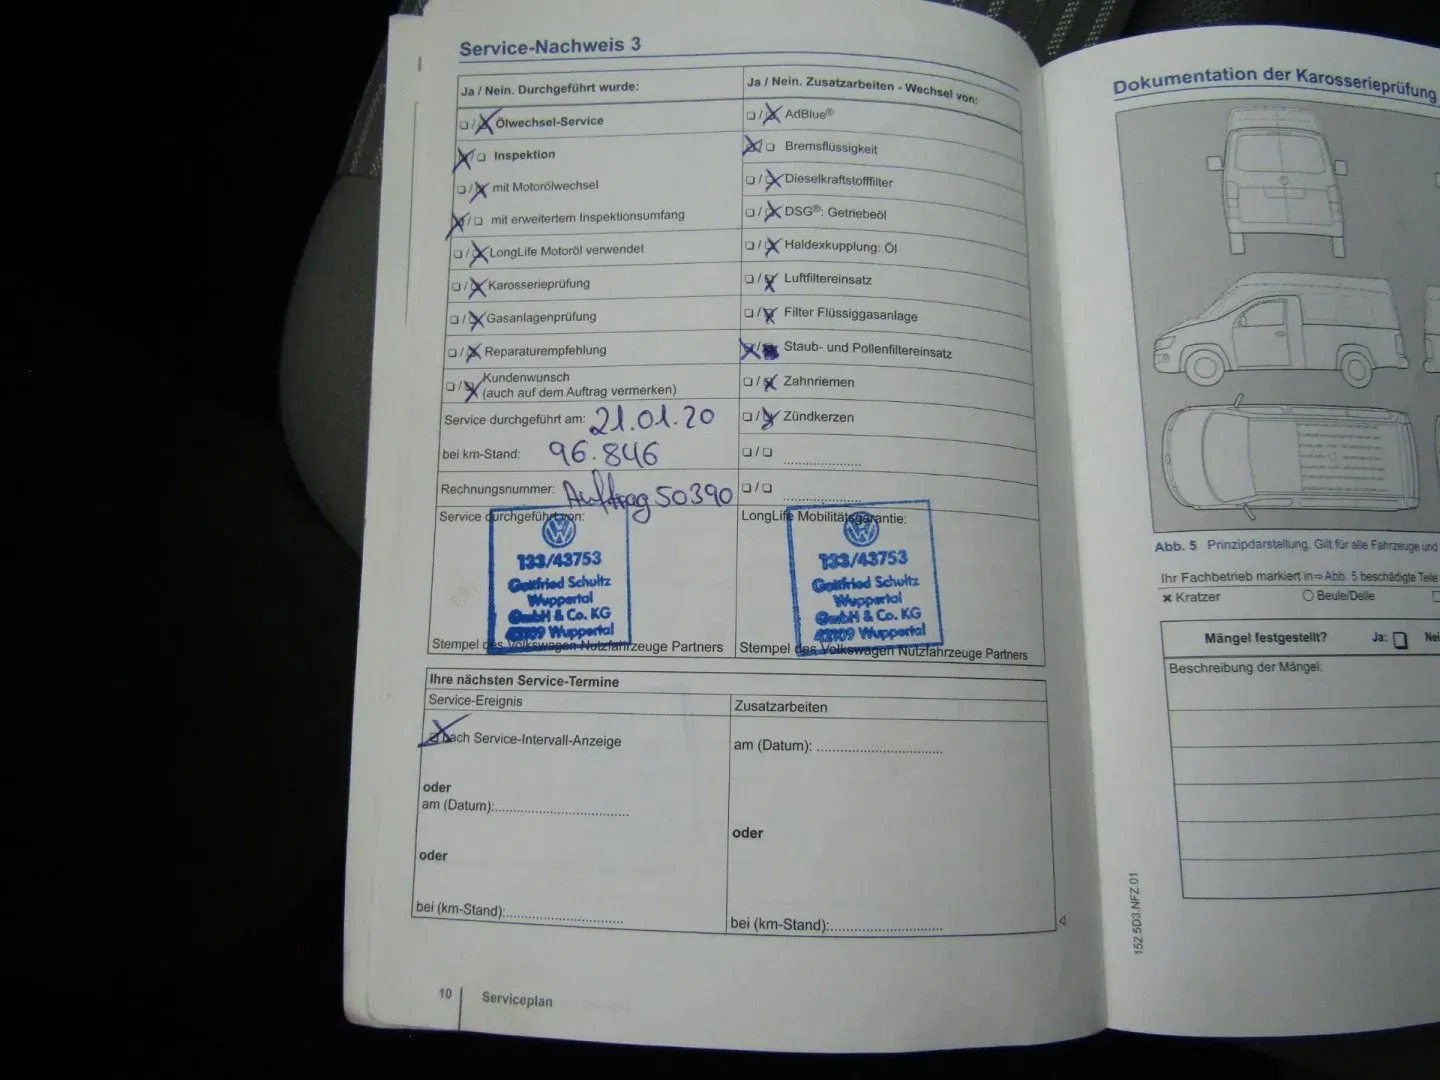 Service-Nachweis 3
Ja / Nein. Durchgeführt wurde:
❏ / ❏ Ölwechsel-Service
❏ / ❏ Inspektion
❏ / ❏ mit Motorölwechsel
❏ / ❏ mit erweitertem Inspektionsumfang
❏ / ❏ LongLife Motoröl verwendet
❏ / ❏ Karosserieprüfung
❏ / ❏ Gasanlagenprüfung
❏ / ❏ Reparaturempfehlung
❏ / ❏ Kundenwunsch
(auch auf dem Auftrag vermerken)
Service durchgeführt am: 21.01.20
bei km-Stand: 96.846
Rechnungsnummer: Auftrag 50390
Ja / Nein. Zusatzarbeiten - Wechsel von:
❏ / ❏ AdBlue®
❏ / ❏ Bremsflüssigkeit
❏ / ❏ Dieselkraftstofffilter
❏ / ❏ DSG®: Getriebeöl
❏ / ❏ Haldexkupplung: Öl
❏ / ❏ Luftfiltereinsatz
❏ / ❏ Filter Flüssiggasanlage
❏ / ❏ Staub- und Pollenfiltereinsatz
❏ / ❏ Zahnriemen
❏ / ❏ Zündkerzen
❏ / ❏ ....................
❏ / ❏ ....................
Service durchgeführt von:
133/43753
Gottfried Schultz
Wuppertal
GmbH & Co. KG
42109 Wuppertal
Stempel des Volkswagen Nutzfahrzeuge Partners
LongLife Mobilitätsgarantie:
133/43753
Gottfried Schultz
Wuppertal
GmbH & Co. KG
42109 Wuppertal
Stempel des Volkswagen Nutzfahrzeuge Partners
Ihre nächsten Service-Termine
Service-Ereignis
❏ nach Service-Intervall-Anzeige
oder
am (Datum):..................................
oder
bei (km-Stand):..............................
Zusatzarbeiten
am (Datum): ................................
oder
bei (km-Stand):.............................
10 Serviceplan
Dokumentation der Karosserieprüfung
Abb. 5 Prinzipdarstellung. Gilt für alle Fahrzeuge und
Ihr Fachbetrieb markiert in ⇒ Abb. 5 beschädigte Teile
× Kratzer ○ Beule/Delle
Mängel festgestellt? Ja: ❏
Beschreibung der Mängel:
152.5D3.NFZ.01